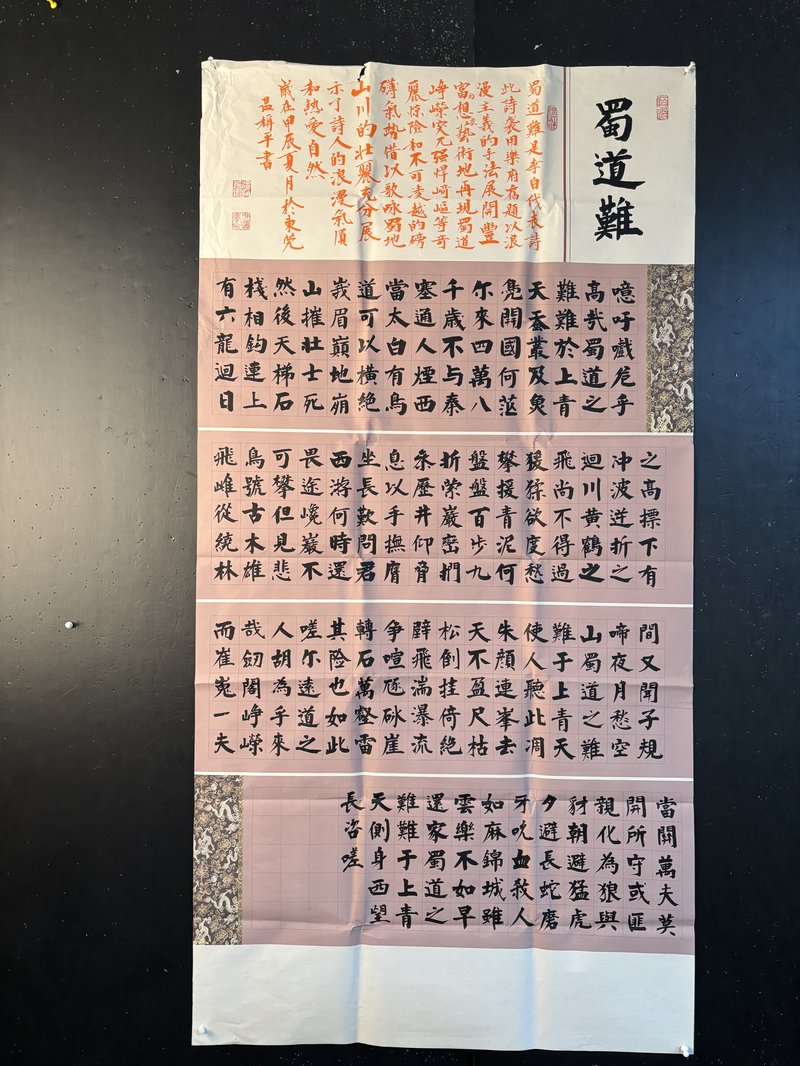 蜀道難
蜀道難是李白代表詩
此詩袭用樂府舊題以浪
漫主義的手法展開豐
富想象藝術地再現蜀道
崢嶸突兀强悍崎嶇等奇
麗惊險和不可凌越的磅
礴氣勢借以歌咏蜀地
山川的壯麗充分展
示了詩人的浪漫氣質
和熱愛自然
歲在甲辰夏月於東莞
平書
噫吁戲危乎
高哉蜀道之
難難於上青
天蚕叢及魚
凫開國何茫
尔來四萬八
千歲不与秦
塞通人煙西
當太白有鳥
道可以橫絶
峩眉巔地崩
山摧壮士死
然後天梯石
棧相鈎連上
有六龍迴日
之高標下有
沖波逆折之
迴川黄鶴之
飛尚不得過
猨猱欲度愁
攀援青泥何
盤盤百步九
折縈巖峦捫
参歷井仰脅
息以手撫膺
坐長歎問君
西游何時還
畏途巉巖不
可攀但見悲
鳥號古木雄
飛雌從繞林
間又聞子規
啼夜月愁空
山蜀道之難
難于上青天
使人聽此凋
朱顔連峯去
天不盈尺枯
松倒挂倚絶
壁飛湍瀑流
争喧豗砯崖
轉石萬壑雷
其险也如此
嗟尔遠道之
人胡為乎來
哉劒閣崢嶸
而崔嵬一夫
當關萬夫莫
開所守或匪
親化為狼與
豺朝避猛虎
夕避長蛇磨
牙吮血殺人
如麻錦城雖
雲樂不如早
還家蜀道之
難難于上青
天側身西望
長咨嗟